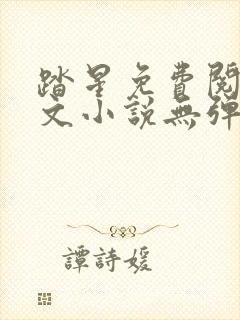 踏星免費閱
文小說無彈
譚詩媛